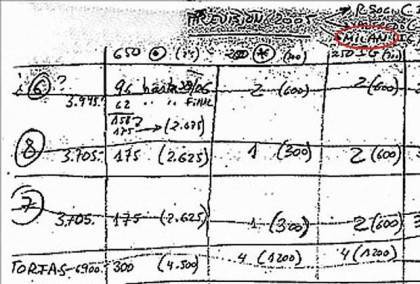 PREVISION 2005 → R.SOC,C.
MILAN
650 (75) 250 (300) 250 G
6 ? 96 hasta 30/06 2 (600) 2 (600)
3.975. 62 " " FINAL
158?
175 → (2.625)
8 3.705. 175 (2.625) 1 (300) 2 (600)
7
3.705. 175 (2.625) 1 (300) 2 (600)
TORTAS-6900. 300 (4.500) 4 (1200) 4 (1200)